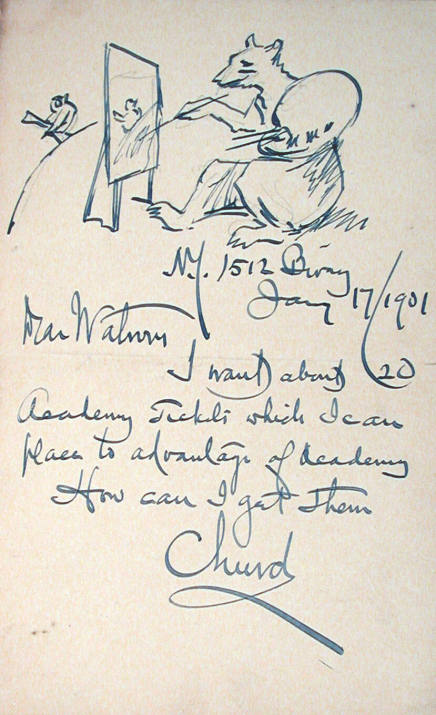 N.Y. 1512 Bway
Jany 17/1901
Dear Watrous
I want about 20
Academy Tickets which I can
place to advantage of Academy
How can I get them
Church